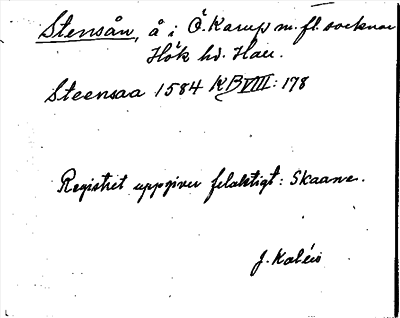 Stensån, å i Ö. Karup m. fl. socknar
Hök hd. Hall.
Steensaa 1584 KB VIII: 178
Registret uppgiver felaktigt: Skaane.
J. Kalén